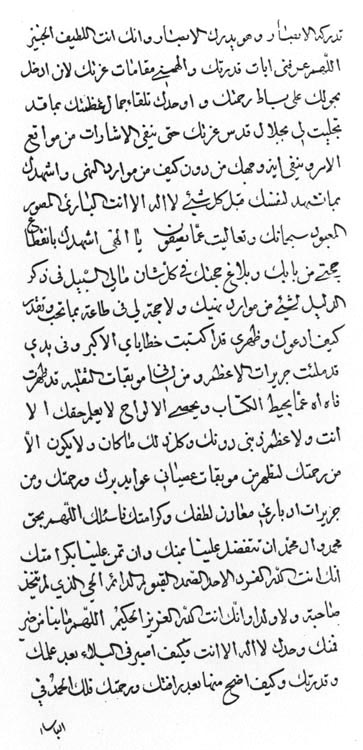 تدركه الابصار وهو يدرك الابصار وانك انت اللطيف الخبير
اللهم عرفني ايات قدرتك والهمني مقامات عزتك لان ادخل
بحولك على بساط رحمتك و اوحدك تلقاء جمال عظمتك بما قد
تجليت لي بجلال قدس عزتك حتى ينفي الاشارات من مواقع
الامر ويبقى وجهك من دون كيف من موارد النهي و اشهدك
بما تشهد لنفسك قبل كل شيء لا اله الا انت البارئ المصور
المعبود سبحانك وتعاليت عما يصفون يا الهي اشهدك بانقطاع
حجتي من بابك وبلاغ حجتك في كل شان مالي السبيل في ذكر
الدليل لشيء من موارد نهيك ولا حجة لي في طاعة بما تحب وتقدر
كيف ادعوك وظهري قد اكتسبت خطاياي الاكبر وفي يدي
قد ملئت جريرات الاعظم ومن لساني موبقات الثقيله قد ظهرت
فاه اه عما يحيط الكتاب ويحصي الالواح لا يعلم حقك الا
انت ولا عظم ذنبي دونك وكل ذلك ما كان ولا يكون الا
من رحمتك لتظهر من موبقات عصياني عوايد برك ورحمتك ومن
جريرات ادباري معادن لطفك وكرامتك فاسئلك اللهم بحق
محمد وال محمد ان تتفضل علينا بمنك وان تمن علينا بكرامتك
انك انت الله الفرد الاحد الصمد القيوم الدائم الحي الذي لم تتخذ
صاحبة ولا ولدا وانك انت الله العزيز الحكيم اللهم
وحدك لا اله الا انت وكيف اصبر في البلاء بعد علمك
وقدرتك وكيف اضج منها بعد رافتك ورحمتك فلك الحمد في